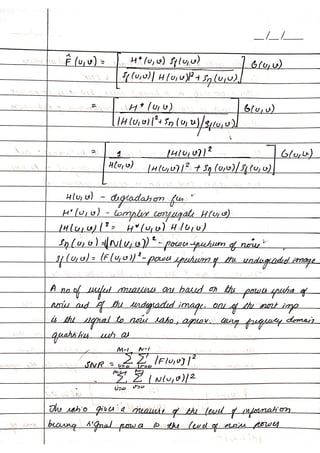 __/__/____
F̂(u,v) = [ H*(u,v) Sf(u,v) / Sf(u,v)|H(u,v)|² + Sη(u,v) ] G(u,v)
= [ H*(u,v) / |H(u,v)|² + Sη(u,v)/Sf(u,v) ] G(u,v)
= [ 1/H(u,v) |H(u,v)|² / |H(u,v)|² + Sη(u,v)/Sf(u,v) ] G(u,v)
H(u,v) - degradation fun"
H*(u,v) - complex conjugate H(u,v)
|H(u,v)|² = H*(u,v) H(u,v)
Sη(u,v) = |N(u,v)|² - power spectrum of noise
Sf(u,v) = |F(u,v)|² - power spectrum of the undegraded image
A no of useful measures are based on the power spectra of
noise and of the undegraded image. one of the most imp
is the signal to noise ratio, approx. using frequency domain
quantities such as
SNR = M-1 Σ u=0 N-1 Σ v=0 |F(u,v)|² / M-1 Σ u=0 N-1 Σ v=0 |N(u,v)|²
The ratio gives a measure of the level of information
bearing signal power to the level of noise power